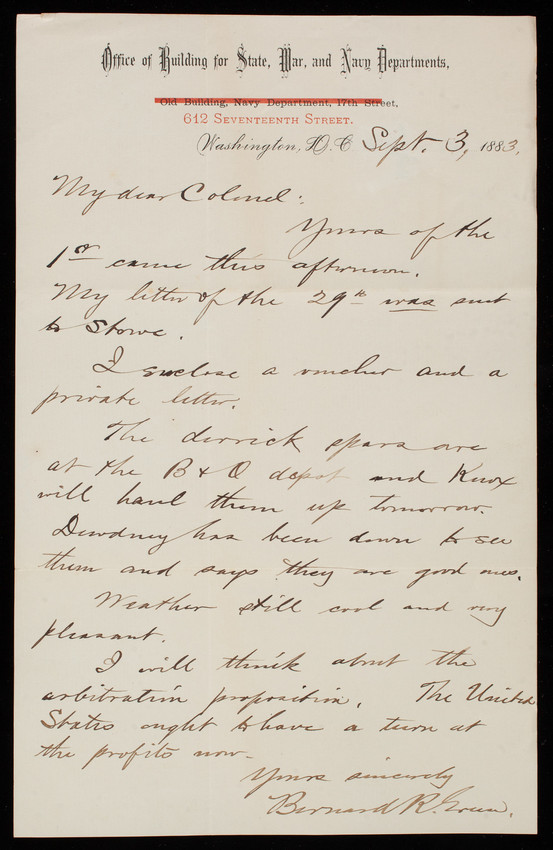 Office of Building for State, War, and Navy Departments,
Old Building, Navy Department, 17th Street,
612 SEVENTEENTH STREET.
Washington, D.C. Sept. 3, 1883.
My dear Colonel:
Yours of the
1st came this afternoon.
My letter of the 29th was sent
to Stowe.
I enclose a voucher and a
private letter.
The derrick spars are
at the B & O depot and Knox
will haul them up tomorrow.
Dewdney has been down to see
them and says they are good ones.
Weather still cool and very
pleasant.
I will think about the
arbitration proposition. The United
States ought to have a turn at
the profits now.
Yours sincerely
Bernard R. Green.